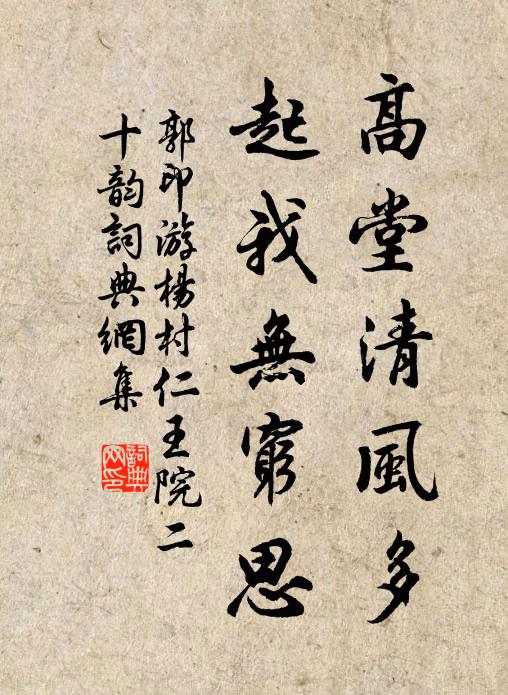 高堂清風多
起我無窮思
郭印游楊村仁王院二
十韵詞典網集
詞典网印